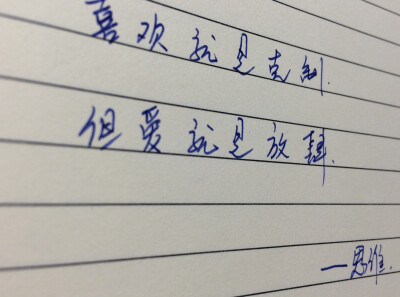 喜欢就是克制.
但爱就是放肆.
—思维.